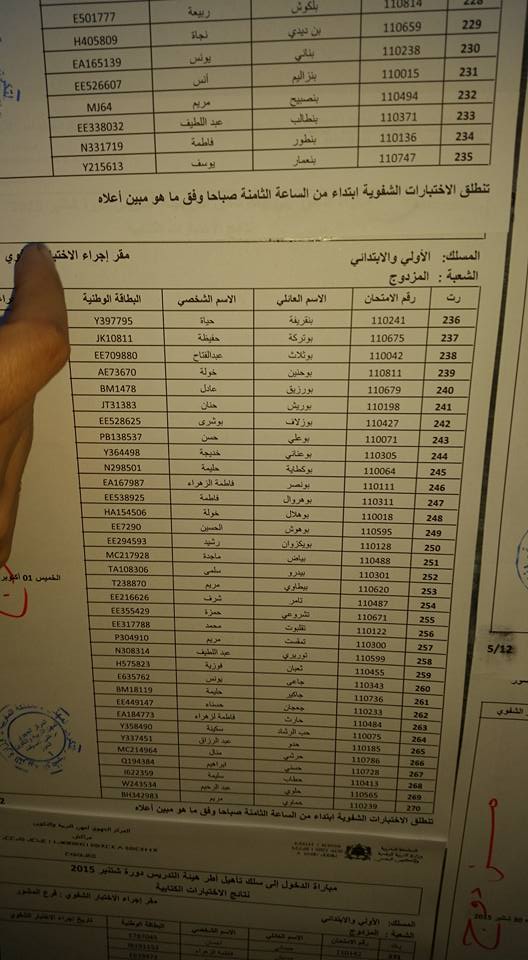 228 110814 بلكوش ربيعة E501777
229 110659 بن ديدي نجاة H405809
230 110238 بناني يونس EA165139
231 110015 بنزاليم أنس EE526607
232 110494 بنصبيح مريم MJ64
233 110371 بنطالب عبد اللطيف EE338032
234 110136 بنطور فاطمة N331719
235 110747 بنعمار يوسف Y215613
تنطلق الاختبارات الشفوية ابتداء من الساعة الثامنة صباحا وفق ما هو مبين أعلاه
المسلك: الأولي والابتدائي
مقر إجراء
الشعبة : المزدوج
رت رقم الامتحان الاسم العائلي الاسم الشخصي البطاقة الوطنية
236 110241 بنقريفة حياة Y397795
237 110675 بوتركة حفيظة JK10811
238 110042 بوثلاث عبدالفتاح EE709880
239 110811 بوجنين خولة AE73670
240 110679 بورزيق عادل BM1478
241 110198 بوريش حنان JT31383
242 110427 بوزلاف بوشرى EE528625
243 110071 بوعلي حسن PB138537
244 110305 بوعناني خديجة Y364498
245 110064 بوكطاية حليمة N298501
246 110111 بونصر فاطمة الزهراء EA167987
247 110311 بوهروال فاطمة EE538925
248 110018 بوهلال خولة HA154506
249 110595 بوهوش الحسين EE7290
250 110128 بويكزوان رشيد EE294593
251 110488 بياض ماجدة MC217928
252 110301 بيدرو سلمى TA108306
253 110620 بيطاوي مريم T238870
254 110487 تامر شرف EE216626
255 110671 تشروعي حمزة EE355429
256 110122 تقلبوت محمد EE317788
257 110300 تمقست مريم P304910
258 110599 توريري عبد اللطيف N308314
259 110455 ثعبان فوزية H575823
260 110343 جاعى يونس E635762
261 110736 جاكير حليمة BM18119
262 110233 جعجان حسناء EE449147
263 110484 حارث فاطمة لزهراء EA184773
264 110075 حب الرشاد سكينة Y358490
265 110185 حدو عبد الرزاق Y337451
266 110786 حرشي منال MC214964
267 110728 حسني ابراهيم Q194384
268 110413 حطاب سليمة I622359
269 110565 حلوي عبد الرحيم W243534
270 110239 حماوي مريم BH342983
تنطلق الاختبارات الشفوية ابتداء من الساعة الثامنة صباحا وفق ما هو مبين أعلاه
الخميس 01 أكتوبر
5/12
مباراة الدخول إلى سلك تأهيل أطر هيئة التدريس دورة شتنبر 2015
نتائج الاختبارات الكتابية
المسلك: الأولي والابتدائي
مقر إجراء الاختبار الشفوي : فرع المشور
الشعبة : المزدوج
رت رقم الامتحان الاسم العائلي الاسم الشخصي البطاقة الوطنية تاريخ إجراء الاختبار الشفوي